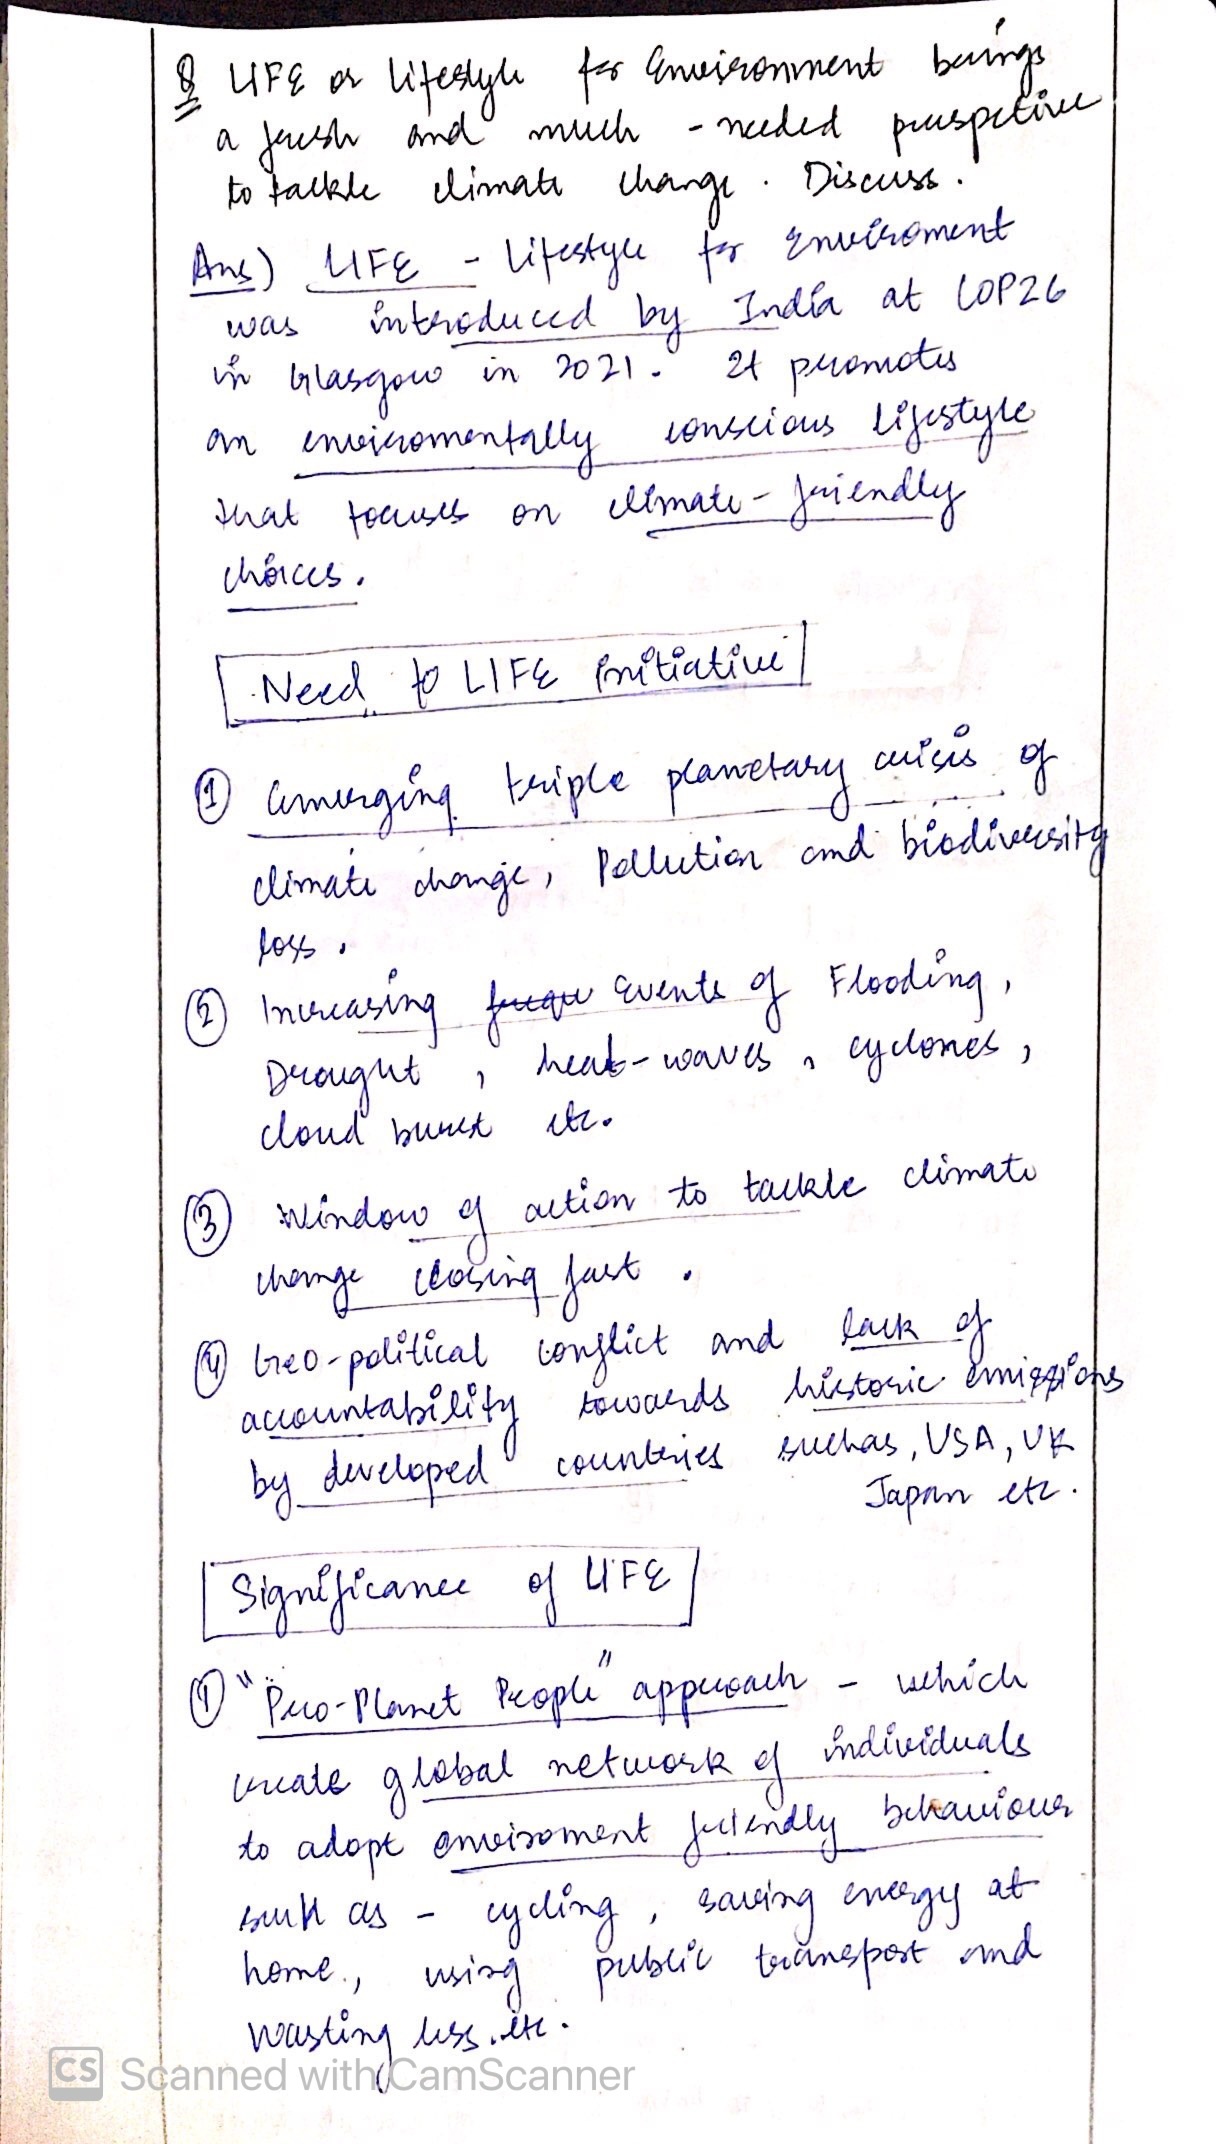 Q LIFE or lifestyle for Environment brings
a fresh and much - needed perspective
to tackle climate change. Discuss.
Ans) LIFE - Lifestyle for Enviroment
was introduced by India at COP26
in Glasgow in 2021. It promotes
an enviromentally conscious lifestyle
that focuses on climate-friendly
choices.
Need to LIFE initiative
① Emerging triple planetary crisis of
climate change, Pollution and biodiversity
loss.
② Increasing frequ Events of Flooding,
Drought, heat-waves, cyclones,
cloud burst etc.
③ Window of action to tackle climate
change closing fast.
④ Geo-political conflict and lack of
accountability towards historic emissions
by developed countries such as, USA, UK
Japan etc.
Significance of LIFE
① "Pro-Planet People" approach - which
create global network of individuals
to adopt enviroment friendly behaviour
such as - cycling, saving energy at
home, using public transport and
wasting less. etc.
CS Scanned with CamScanner